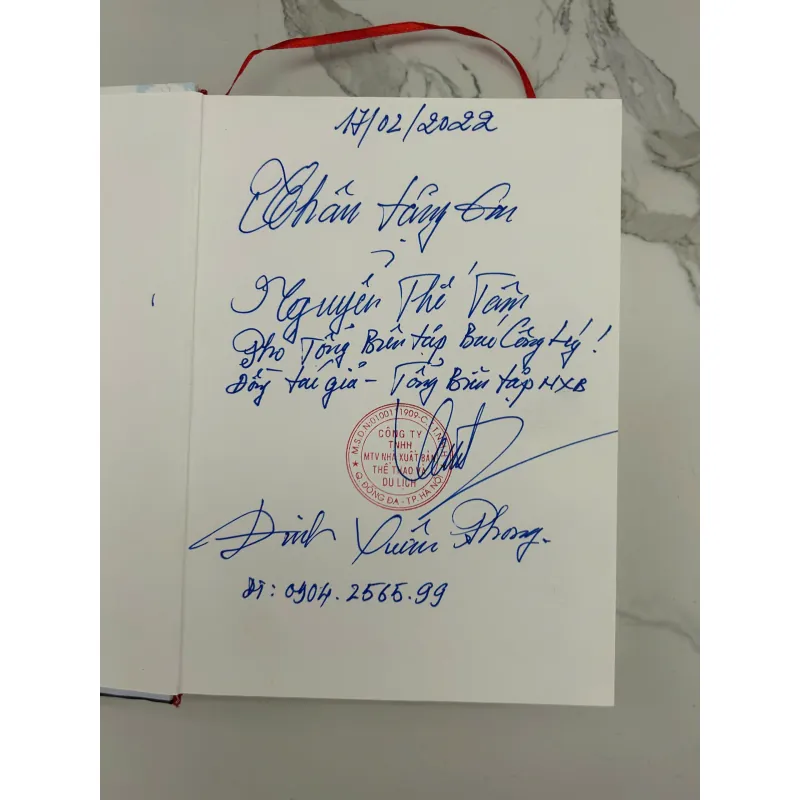 17/02/2022
Thân tặng Em
Nguyễn Thế Tâm
Phó Tổng Biên tập Báo Công Lý!
Đồng tác giả - Tổng Biên tập NXB
M.S.D.N:01001 1909-C.T.T.N.H.H
CÔNG TY
TNHH
MTV NHÀ XUẤT BẢN
THỂ THAO VÀ
DU LỊCH
Q. ĐỐNG ĐA - TP. HÀ NỘI
Đinh Xuân Phong.
ĐT: 0904.2565.99